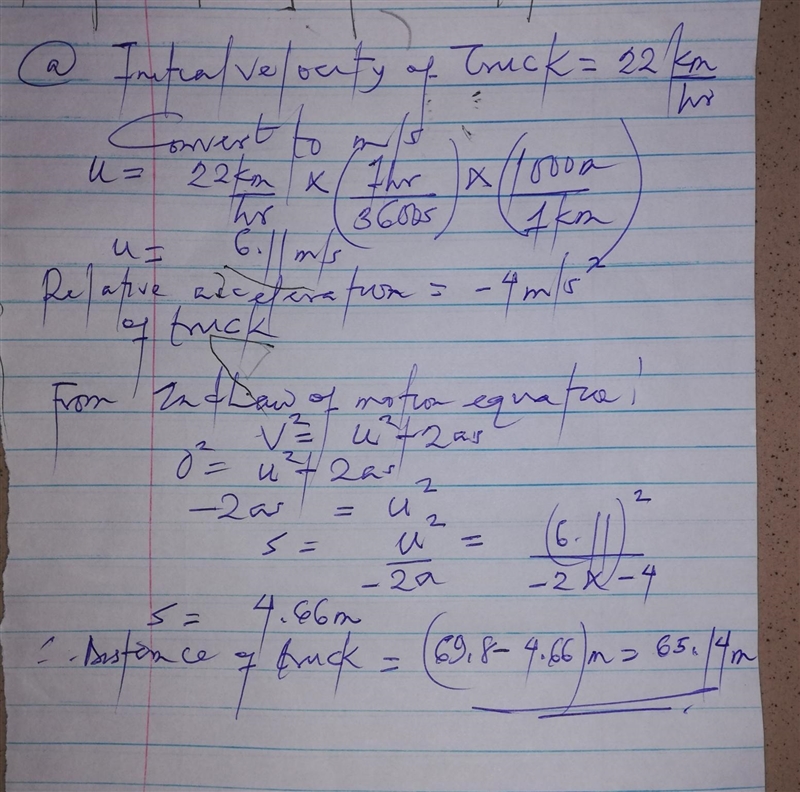 (a) Initial velocity of Truck = 22 km/hr
Convert to m/s
u = 22 km/hr × (1hr/3600s) × (1000m/1km)
u = 6.11 m/s
Relative acceleration = -4 m/s²
of truck
From 2nd Law of motion equation;
V² = u² + 2as
0² = u² + 2as
-2as = u²
s = u²/-2a = (6.11)²/-2 x -4
s = 4.66m
∴ Distance of truck = (69.8 - 4.66)m = 65.14m